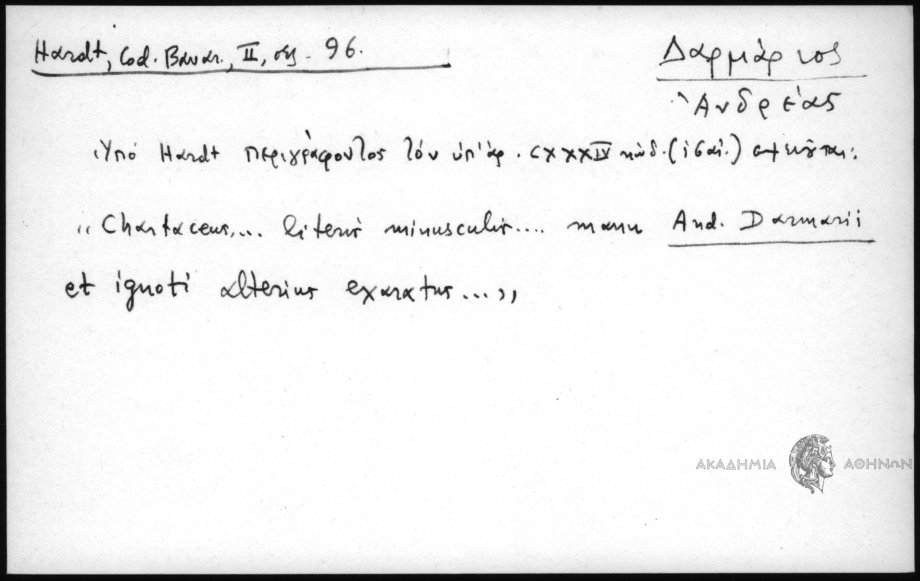 Hardt, Cod. Bavar., II, σελ. 96.
Δαρμάριος
Ἀνδρέας
Ὑπό Hardt περιγράφοντος τόν ὑπ' ἀρ. CXXXIV κώδ. (ιϛ αἰ.)
„Chartaceus,... literis minusculis.... manu And. Darmarii
et ignoti alterius exaratus...„
ΑΚΑΔΗΜΙΑ ΑΘΗΝΩΝ